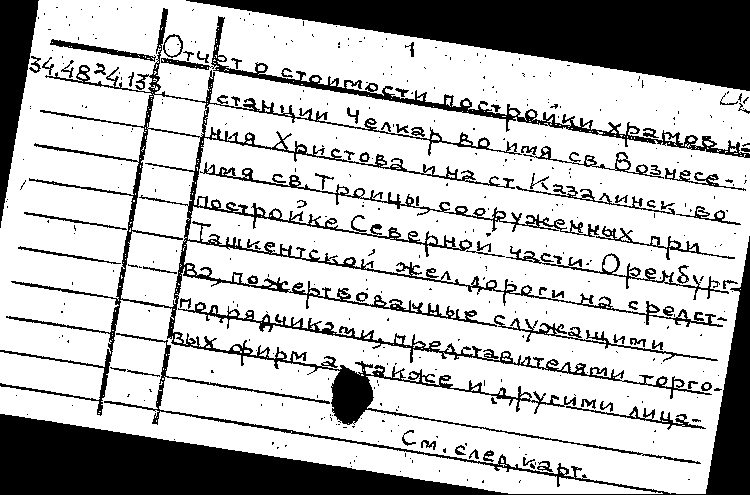 1
34.48²4.133. Отчет о стоимости постройки храмов на
станции Челкар во имя св. Вознесе-
ния Христова и на ст. Казалинск во
имя св. Троицы, сооруженных при
постройке Северной части Оренбург-
Ташкентской жел. дороги на средст-
ва, пожертвованные служащими,
подрядчиками, представителями торго-
вых фирм, а также и другими лица-
См. след. карт.